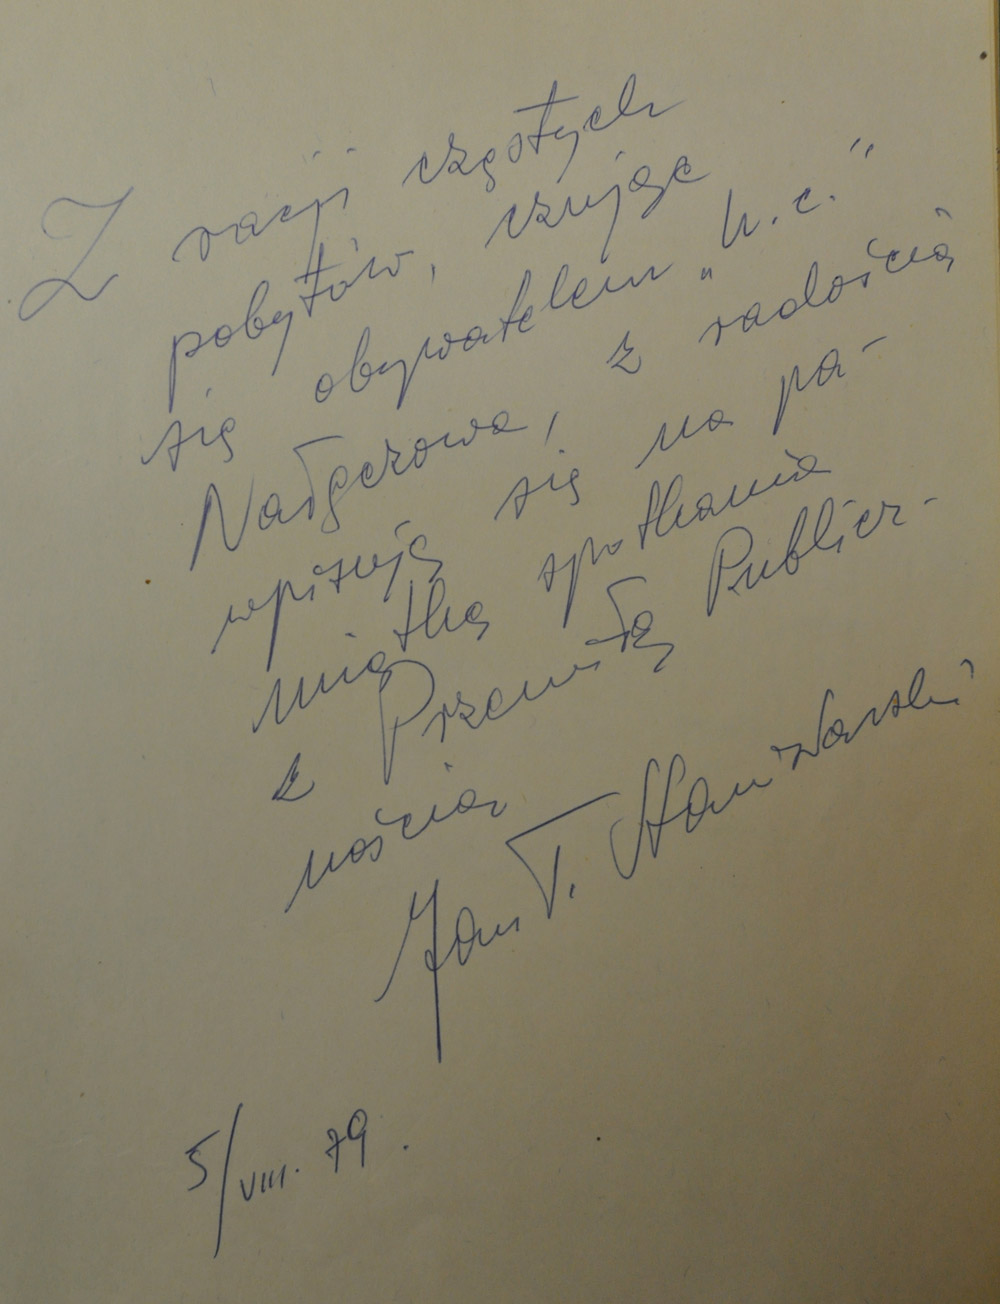 Z racji częstych
pobytów, czując
się obywatelem „h.c.”
Nałęczowa, z radością
wpisuję się na pa-
miątkę spotkania
z Przemiłą Publicz-
nością
Jan T. Stanisławski
5/VIII. 79.